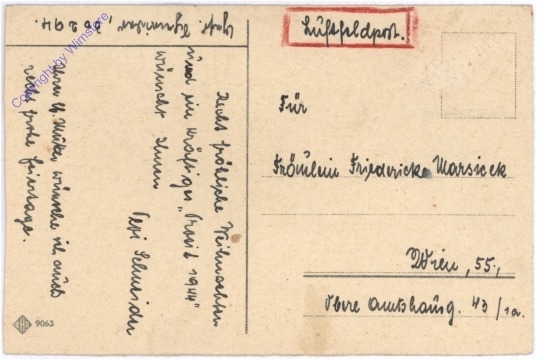 Luftfeldpost.
Für
Fräulein Friedericke Marsicek
Wien, 55,
Obere Amtshausg. 43/1a.
Recht fröhliche Weihnachten
und ein kräftiges „Prosit 1944"
wünscht Ihnen
Schneider
Ihrer lb. Mutter wünsche ich auch
recht frohe Feiertage.
Copyright by Wimstore
9063